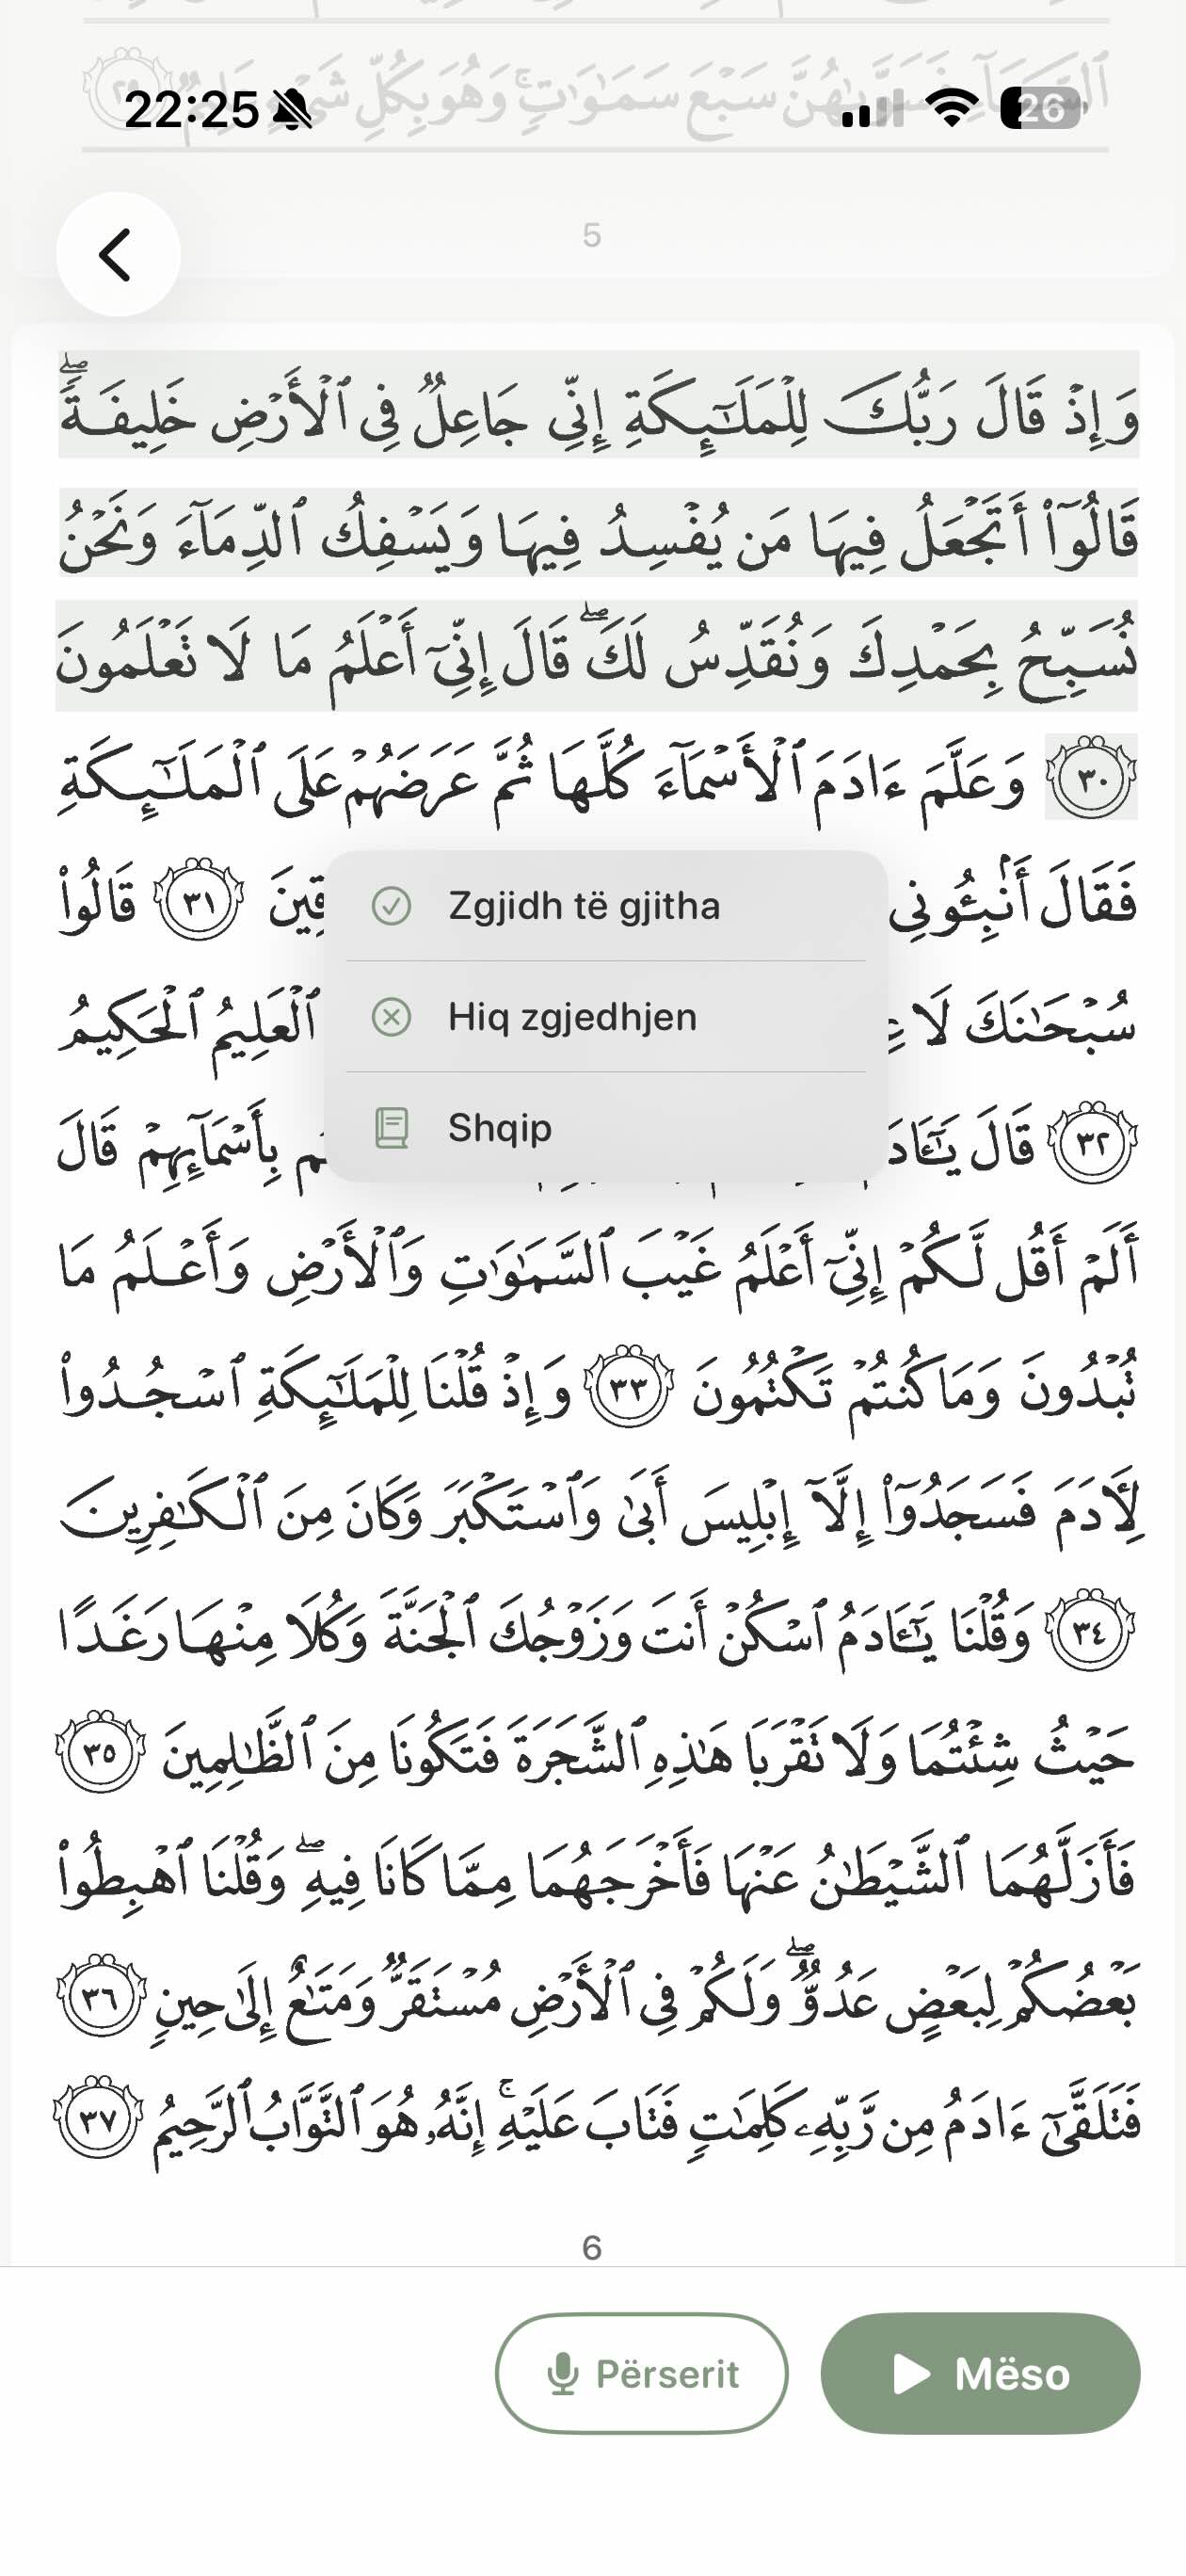 22:25
26
5
وَإِذْ قَالَ رَبُّكَ لِلْمَلَٰٓئِكَةِ إِنِّى جَاعِلٌ فِى ٱلْأَرْضِ خَلِيفَةً ۖ
قَالُوٓا۟ أَتَجْعَلُ فِيهَا مَن يُفْسِدُ فِيهَا وَيَسْفِكُ ٱلدِّمَآءَ وَنَحْنُ
نُسَبِّحُ بِحَمْدِكَ وَنُقَدِّسُ لَكَ ۖ قَالَ إِنِّىٓ أَعْلَمُ مَا لَا تَعْلَمُونَ
٣٠ وَعَلَّمَ ءَادَمَ ٱلْأَسْمَآءَ كُلَّهَا ثُمَّ عَرَضَهُمْ عَلَى ٱلْمَلَٰٓئِكَةِ
فَقَالَ أَنۢبِـُٔونِى قِينَ ٣١ قَالُوا۟
Zgjidh të gjitha
سُبْحَٰنَكَ لَا ٱلْعَلِيمُ ٱلْحَكِيمُ
Hiq zgjedhjen
٣٢ قَالَ يَٰٓـَٔادَ بِأَسْمَآئِهِمْ قَالَ
Shqip
أَلَمْ أَقُل لَّكُمْ إِنِّىٓ أَعْلَمُ غَيْبَ ٱلسَّمَٰوَٰتِ وَٱلْأَرْضِ وَأَعْلَمُ مَا
تُبْدُونَ وَمَا كُنتُمْ تَكْتُمُونَ ٣٣ وَإِذْ قُلْنَا لِلْمَلَٰٓئِكَةِ ٱسْجُدُوا۟
لِـَٔادَمَ فَسَجَدُوٓا۟ إِلَّآ إِبْلِيسَ أَبَىٰ وَٱسْتَكْبَرَ وَكَانَ مِنَ ٱلْكَٰفِرِينَ
٣٤ وَقُلْنَا يَٰٓـَٔادَمُ ٱسْكُنْ أَنتَ وَزَوْجُكَ ٱلْجَنَّةَ وَكُلَا مِنْهَا رَغَدًا
حَيْثُ شِئْتُمَا وَلَا تَقْرَبَا هَٰذِهِ ٱلشَّجَرَةَ فَتَكُونَا مِنَ ٱلظَّٰلِمِينَ ٣٥
فَأَزَلَّهُمَا ٱلشَّيْطَٰنُ عَنْهَا فَأَخْرَجَهُمَا مِمَّا كَانَا فِيهِ ۖ وَقُلْنَا ٱهْبِطُوا۟
بَعْضُكُمْ لِبَعْضٍ عَدُوٌّ ۖ وَلَكُمْ فِى ٱلْأَرْضِ مُسْتَقَرٌّ وَمَتَٰعٌ إِلَىٰ حِينٍ ٣٦
فَتَلَقَّىٰٓ ءَادَمُ مِن رَّبِّهِۦ كَلِمَٰتٍ فَتَابَ عَلَيْهِ ۚ إِنَّهُۥ هُوَ ٱلتَّوَّابُ ٱلرَّحِيمُ ٣٧
6
Përserit
Mëso